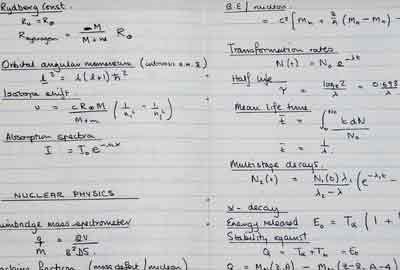 Rydberg Const.
R₀ = R∞
R hydrogen = M / M+m R∞
Orbital angular momentum
l² = l(l+1)ħ²
Isotope shift.
υ = cR∞M / M+m (1/n₁² - 1/n₂²)
Absorption spectra
I = I₀e
NUCLEAR PHYSICS
mass spectrometer
q/m =
(mass defect/nucleon)
B.E / nucleon
= c² [
Transformation rates
N(t) = N₀e^-λt
Half life
τ = logₑ2 / λ = 0.693
Mean life time
t̄ = ∫ t dN / N₀
t̄ = 1/λ
Multistage decays.
N₂(t) = N₁(0)λ₁ / λ₂ - λ₁ (e^-λ₁t -
α- decay
Energy released E₀ = Tα (1 +
Stability against
Q = Tα + Tb = E₀